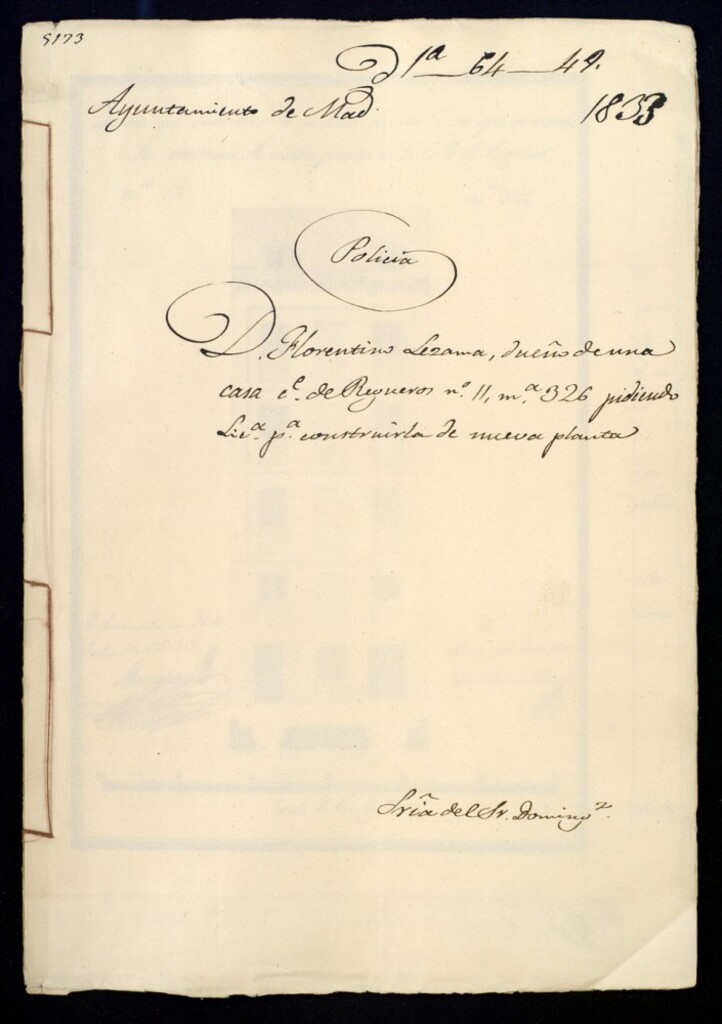 5173
1ª 64 49.
Ayuntamiento de Mad.
1833
Policía
D. Florentino Lezama, dueño de una
casa c.e de Regueros n.º 11, m.ª 326 pidiendo
Lic.ª p.ª construirla de nueva planta
Sría del Sr. Doming.z